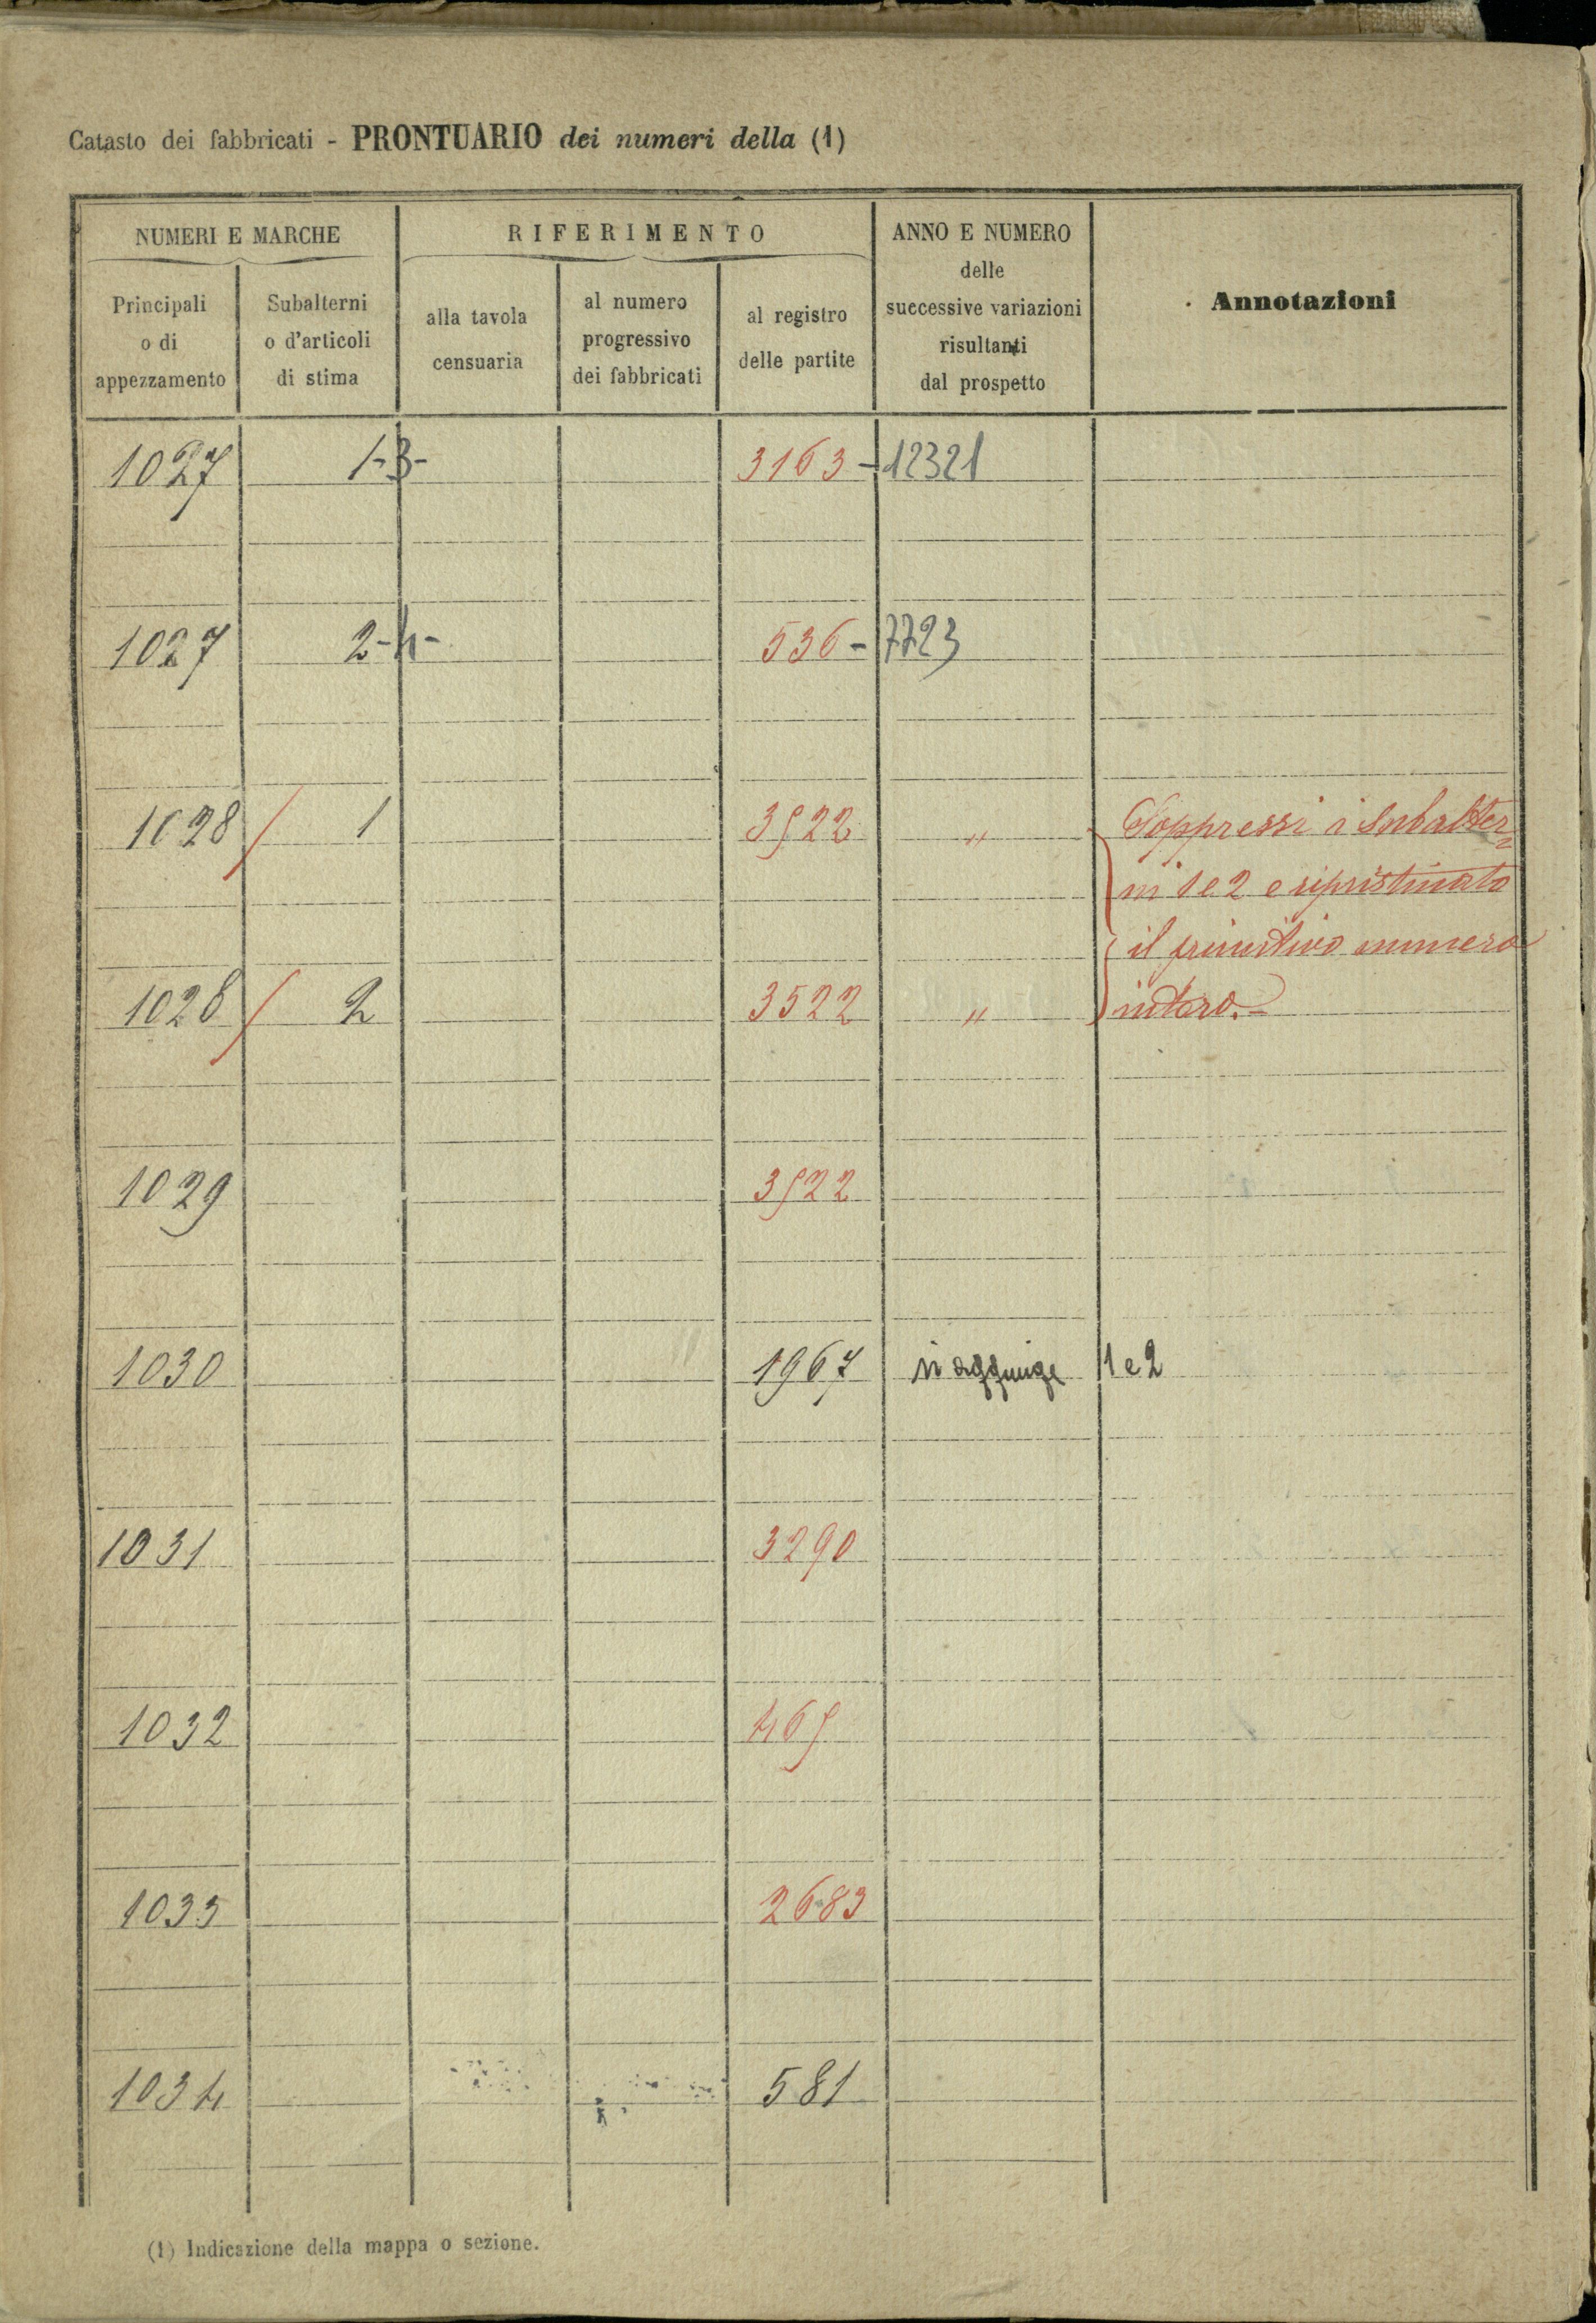 Catasto dei fabbricati - PRONTUARIO dei numeri della (1)
NUMERI E MARCHE
RIFERIMENTO
ANNO E NUMERO
delle
successive variazioni
risultanti
dal prospetto
Annotazioni
Principali
o di
appezzamento
Subalterni
o d'articoli
di stima
alla tavola
censuaria
al numero
progressivo
dei fabbricati
al registro
delle partite
1027 1-3- 3163 - 12321
1027 2-4- 536 - 7723
1028 / 1 3522 " Soppressi i Subalter=
ni 1 e 2 e ripristinato
il primitivo numero
1028 / 2 3522 " intero.-
1029 3522
1030 1967 si aggiunge 1 e 2
1031 3290
1032 465
1033 2683
1034 581
(1) Indicazione della mappa o sezione.